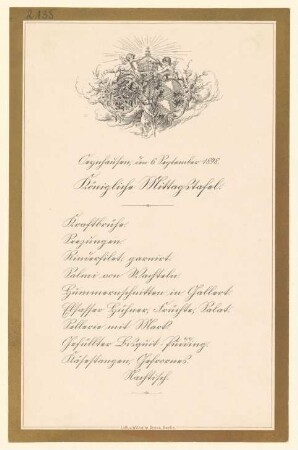 2135
Oeynhausen, den 6. September 1898.
Königliche Mittagstafel.
Kraftbrühe.
Seezungen.
Rinderfilet, garnirt.
Salmi von Wachteln.
Hummernschnitten in Gallert.
Elsasser Hühner, Früchte, Salat.
Sellerie mit Mark.
Gefüllter Bisquit-Pudding.
Käsestangen, Gefrorenes.
Nachtisch.